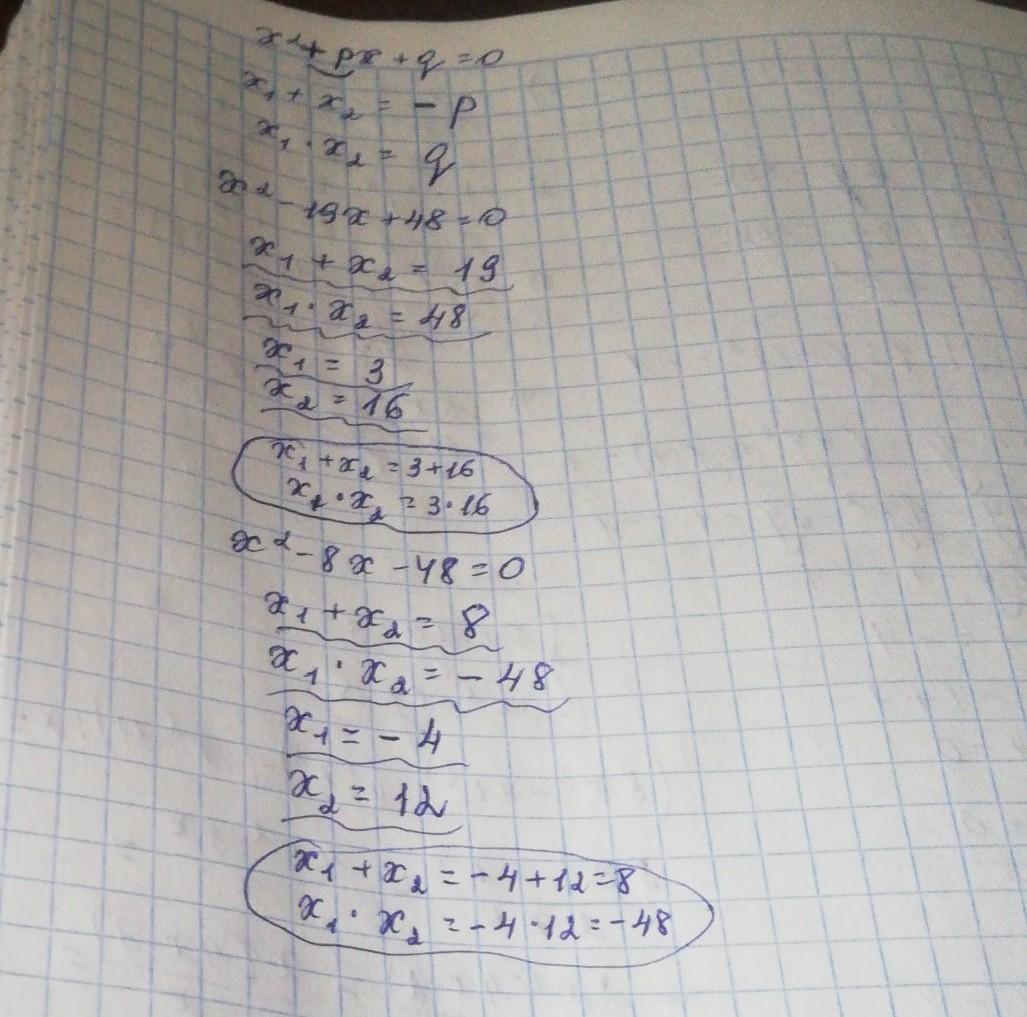 x²+px+q=0
x₁+x₂=-p
x₁·x₂=q
x²-19x+48=0
x₁+x₂=19
x₁·x₂=48
x₁=3
x₂=16
x₁+x₂=3+16
x₁·x₂=3·16
x²-8x-48=0
x₁+x₂=8
x₁·x₂=-48
x₁=-4
x₂=12
x₁+x₂=-4+12=8
x₁·x₂=-4·12=-48